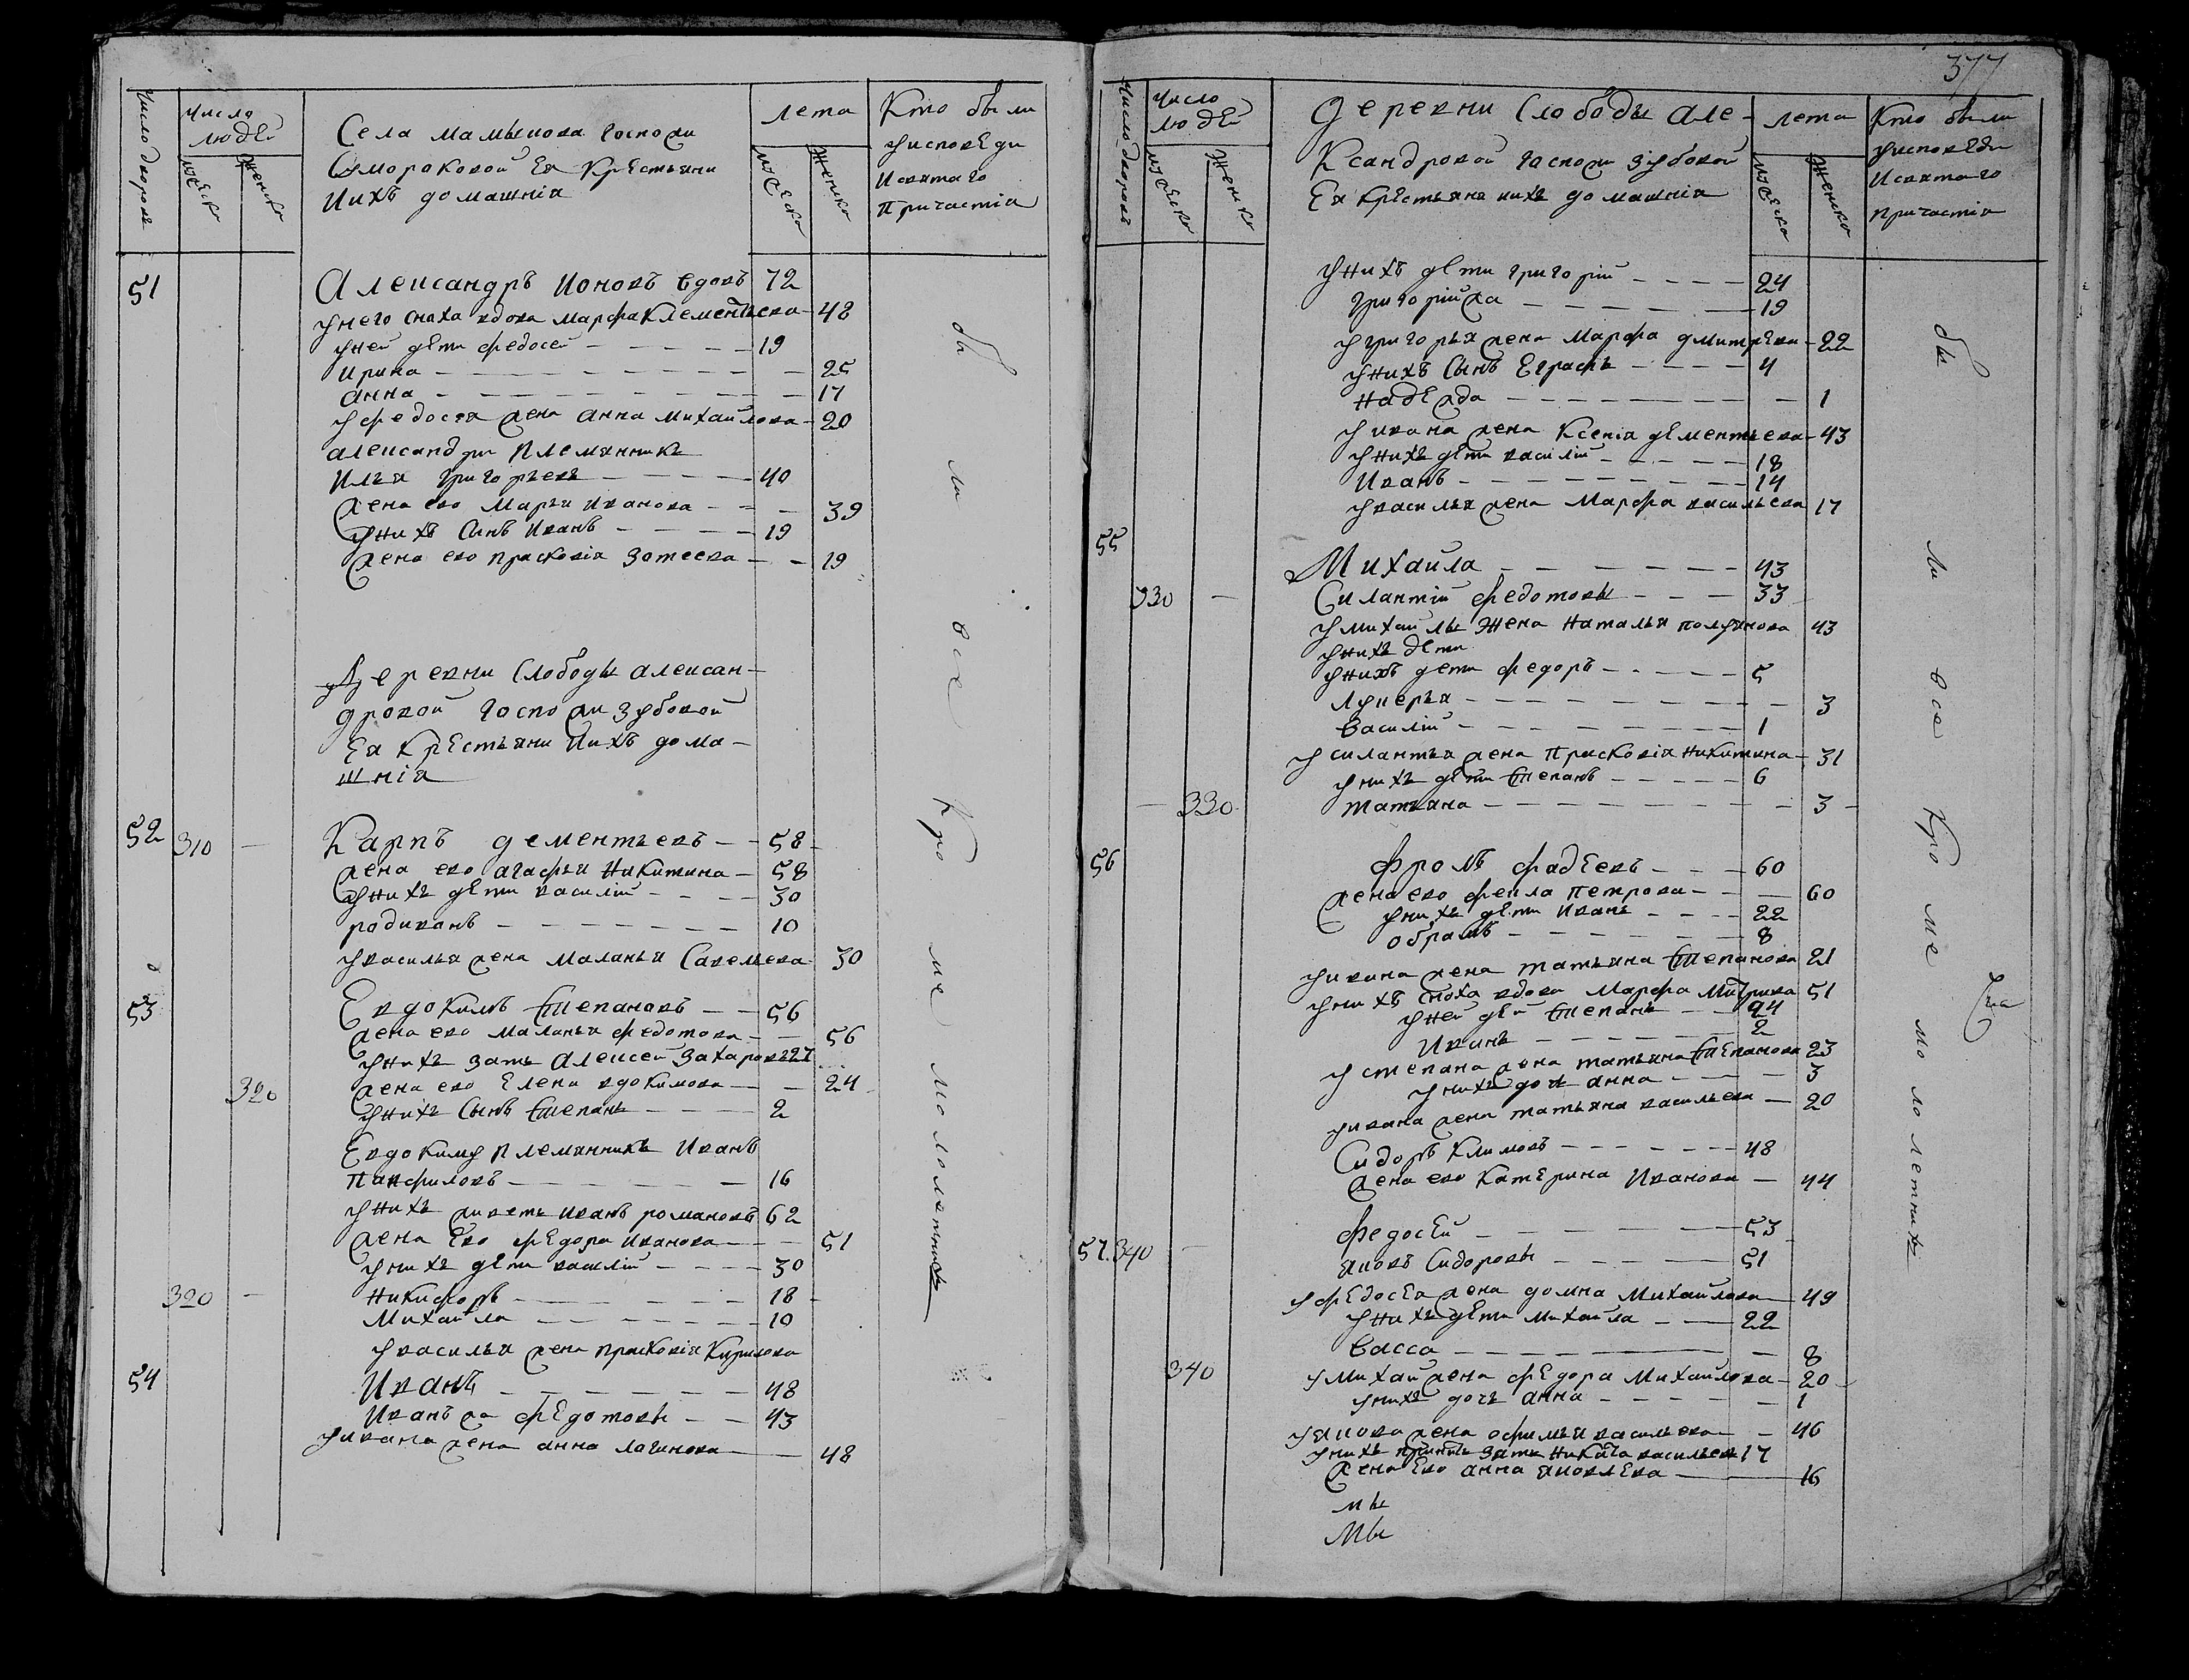 377
Число дворовъ
Число людей
мужеска
женска
Села мамынова Госпожи
Смороковой Ея Крестьяни
Иихъ домашнія
лета
мужеска
женска
Кто были
уисповеди
Исвятаго
Причастія
51 Александръ Ионовъ вдовъ 72
унего сноха вдова марфа Клементьева 48
уней дети федосей 19
ирина 25
анна 17
уфедосея жена анна михайлова 20
александру племянникъ
Илья григорьевъ 40
жена ево Марья иванова 39
унихъ сынъ Иванъ 19
жена ево прасковія Зотеева 19
Деревни Слободы алексан-
дровой госпожи зубовой
Ея Крестьяни Иихъ дома-
шнія
52 310 — Карпъ дементьевъ 58
жена ево агафья Никитина 58
унихъ дети василій 30
родивонъ 10
увасилья жена маланья Савельева 30
53 Евдокимъ Степановъ 56
жена ево маланья федотова 56
унихъ зать алексей Захаровъ 27
320 жена ево Елена вдокимова 24
унихъ сынъ Степанъ 2
Евдокиму племянникъ Иванъ
Панфиловъ 16
унихъ живетъ иванъ романовъ 62
жена Ево федора иванова 51
унихъ дети василій 30
320 — Никифоръ 18
Михайла 10
увасилья жена прасковія Кирилова
54 Иванъ 48
Иванъ жа федотовы 43
уивана жена анна логинова 48
были все Кроме малолетныхъ
Число дворовъ
Число людей
мужеска
женска
деревни Слободы але-
Ксандровой Госпожи зубовой
Ея крестьяне иихъ домашнія
лета
мужеска
женска
Кто были
уисповеди
Исвятаго
причастія
унихъ дети григорій 24
григорій жа 19
угригорья жена марфа дмитрева 22
унихъ сынъ Еграфъ 4
надежда 1
уивана жена Ксенія дементьева 43
унихъ дети василій 18
Иванъ 14
увасилья жена марфа васильева 17
55 Михайла 43
330 — Силантій федотовы 33
умихайлы жена наталья полуянова 43
унихъ дети
унихъ дети федоръ 5
лукерья 3
василій 1
усилантья жена Прасковія Никитина 31
унихъ дети Степанъ 6
— 330 татьяна 3
56 фролъ фадеевъ 60
жена ево фекла петрова 60
унихъ дети Иванъ 22
обрамъ 8
уивана жена татьяна Степанова 21
унихъ сноха вдова марфа 51
уней дети Степанъ 24
Иванъ 2
устепана жена татьяна Степанова 23
унихъ дочь анна 3
уивана жена татьяна васильева 20
Сидоръ Климовъ 48
жена ево Катерина Иванова 44
федосей 53
57. 340 — яковъ Сидоровы 51
уфедосея жена домна михайлова 49
унихъ дети михайла 22
васса 8
340 умихай жена федора михайлова 20
унихъ дочь анна 1
уякова жена офимья васильева 46
унихъ зать никита васильевъ 17
жена Ево анна яковлева 16
мы
мы
были все Кроме мололетныхъ